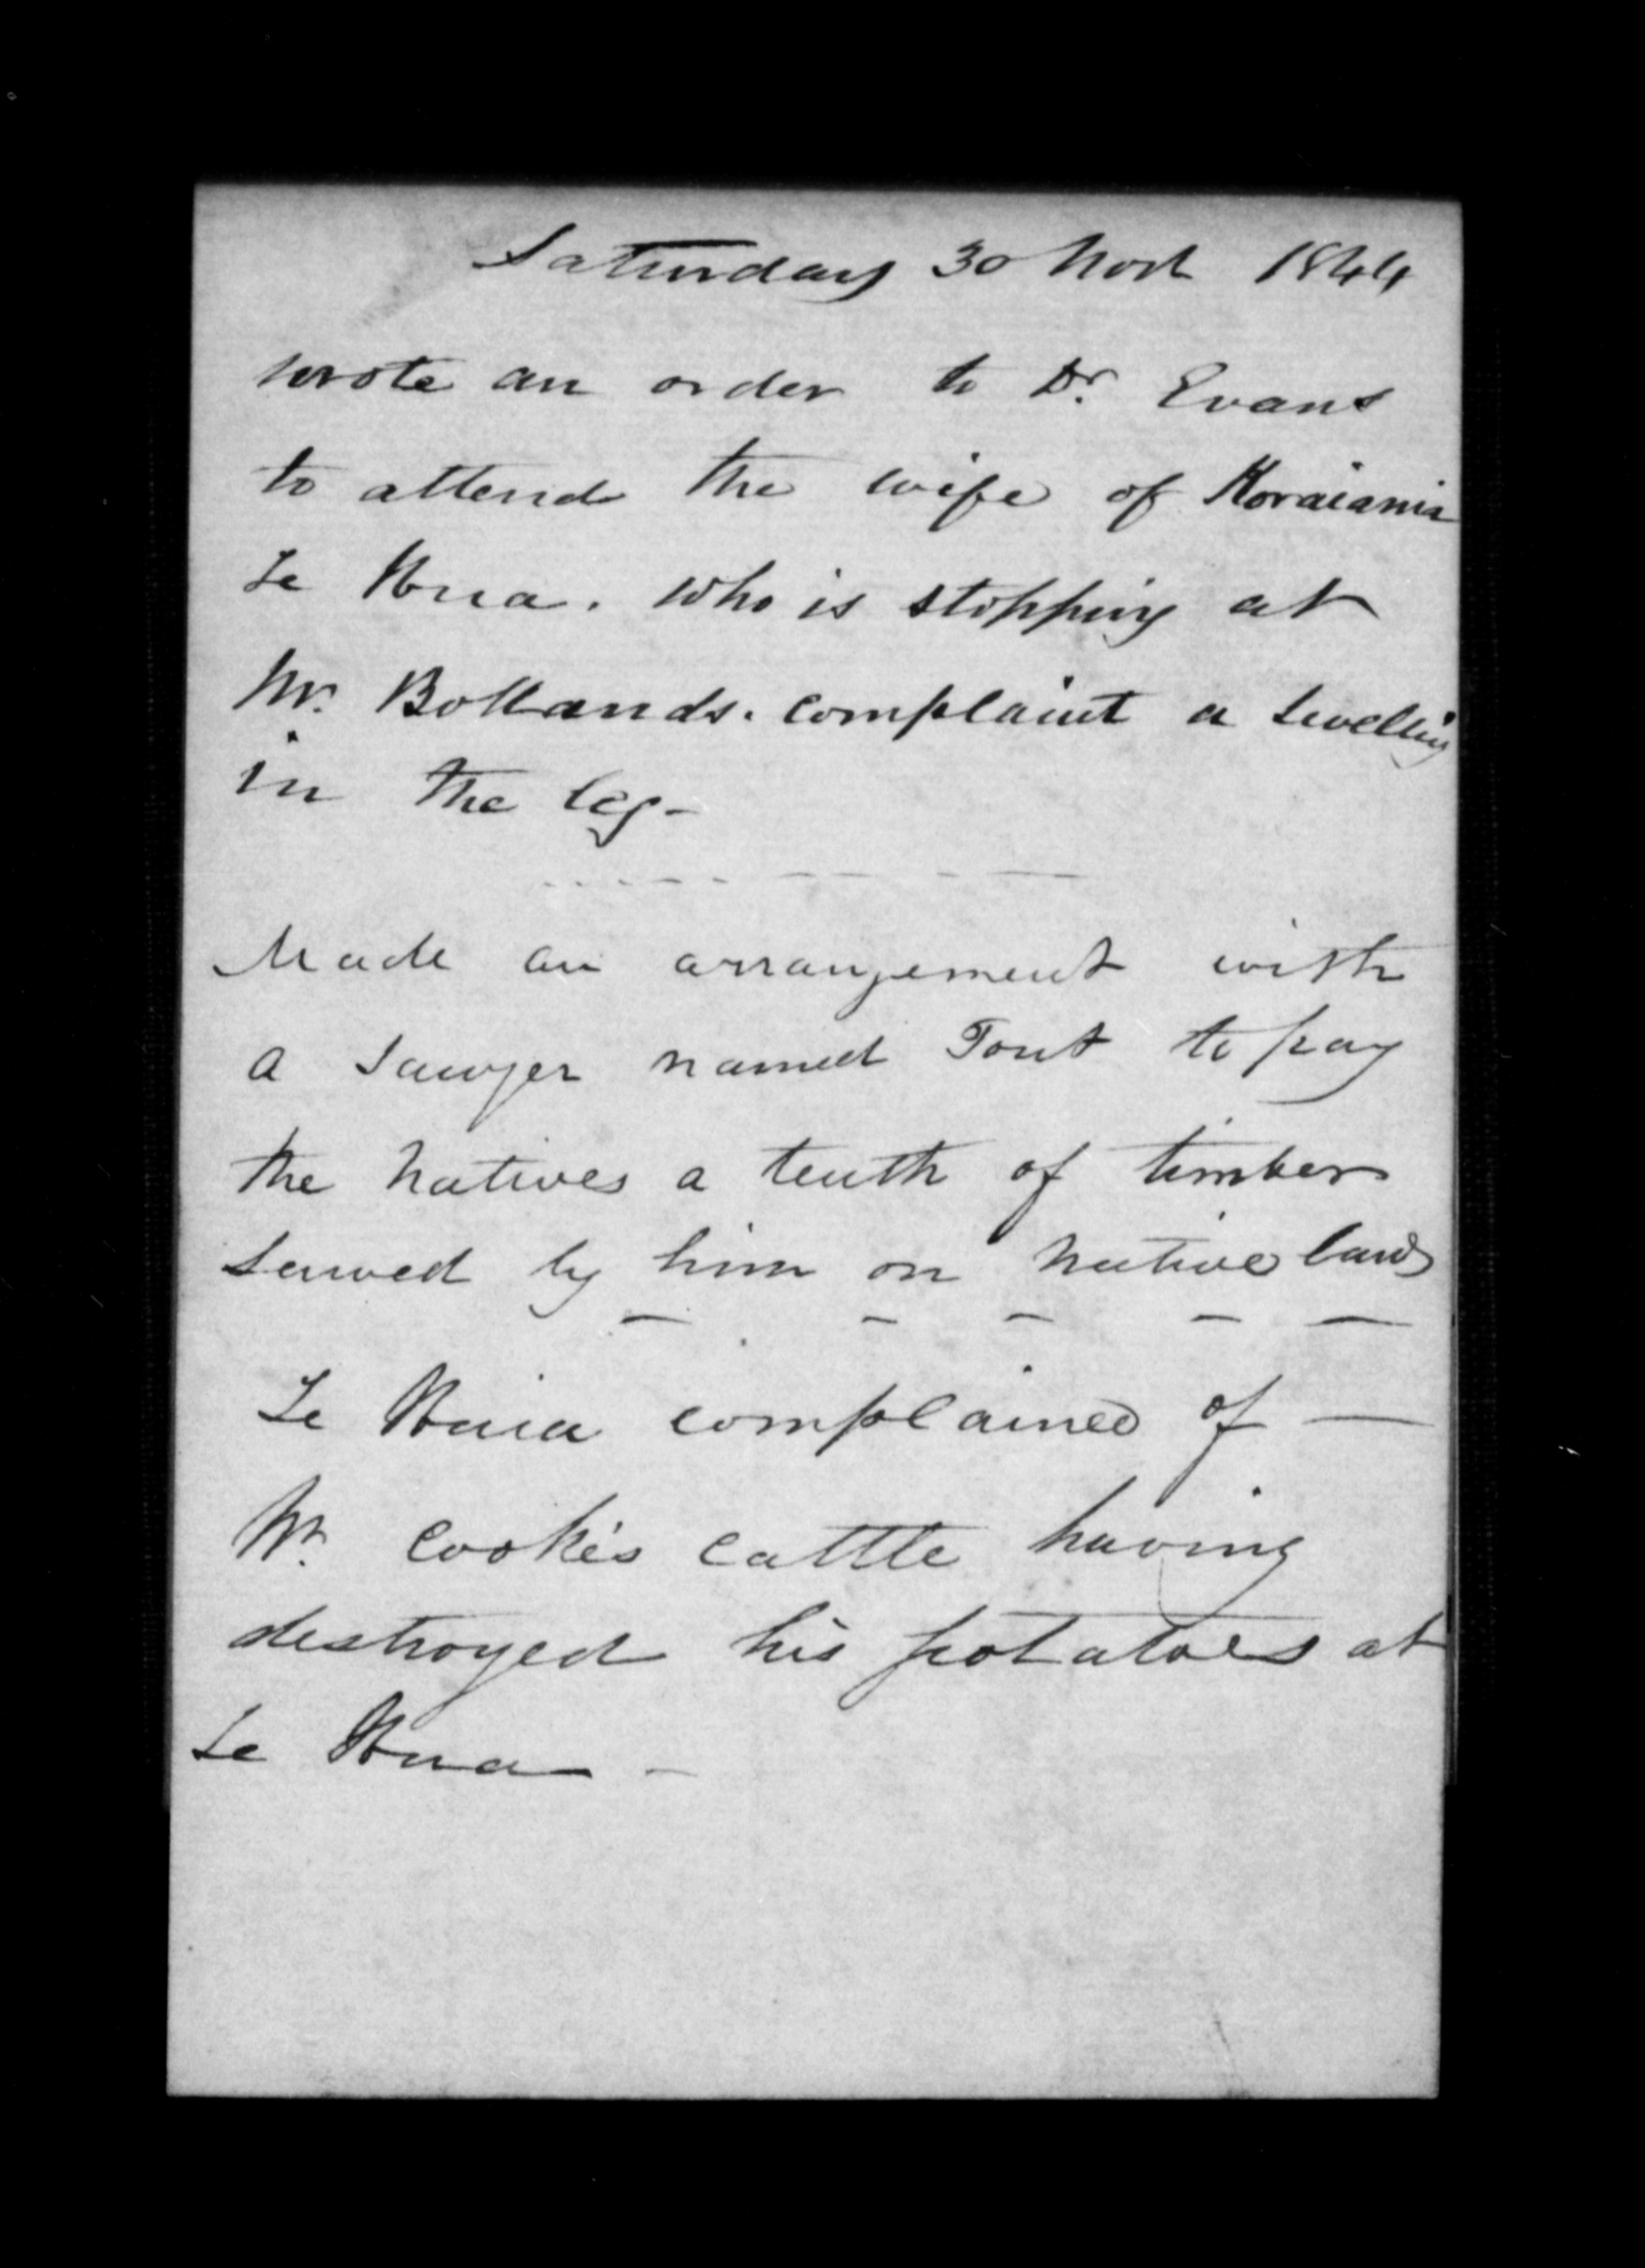 Saturday 30 Novr 1844
wrote an order to Dr. Evans
to attend the wife of Horaiania
Te Hua. who is stopping at
Mr. Bollands. complaint a swelling
in the leg -
Made an arrangement with
a sawyer named Tout to pay
the natives a tenth of timber
sawed by him on native land
Te Huia complained of —
Mr. Cooke's cattle having
destroyed his potatoes at
Te Hua -